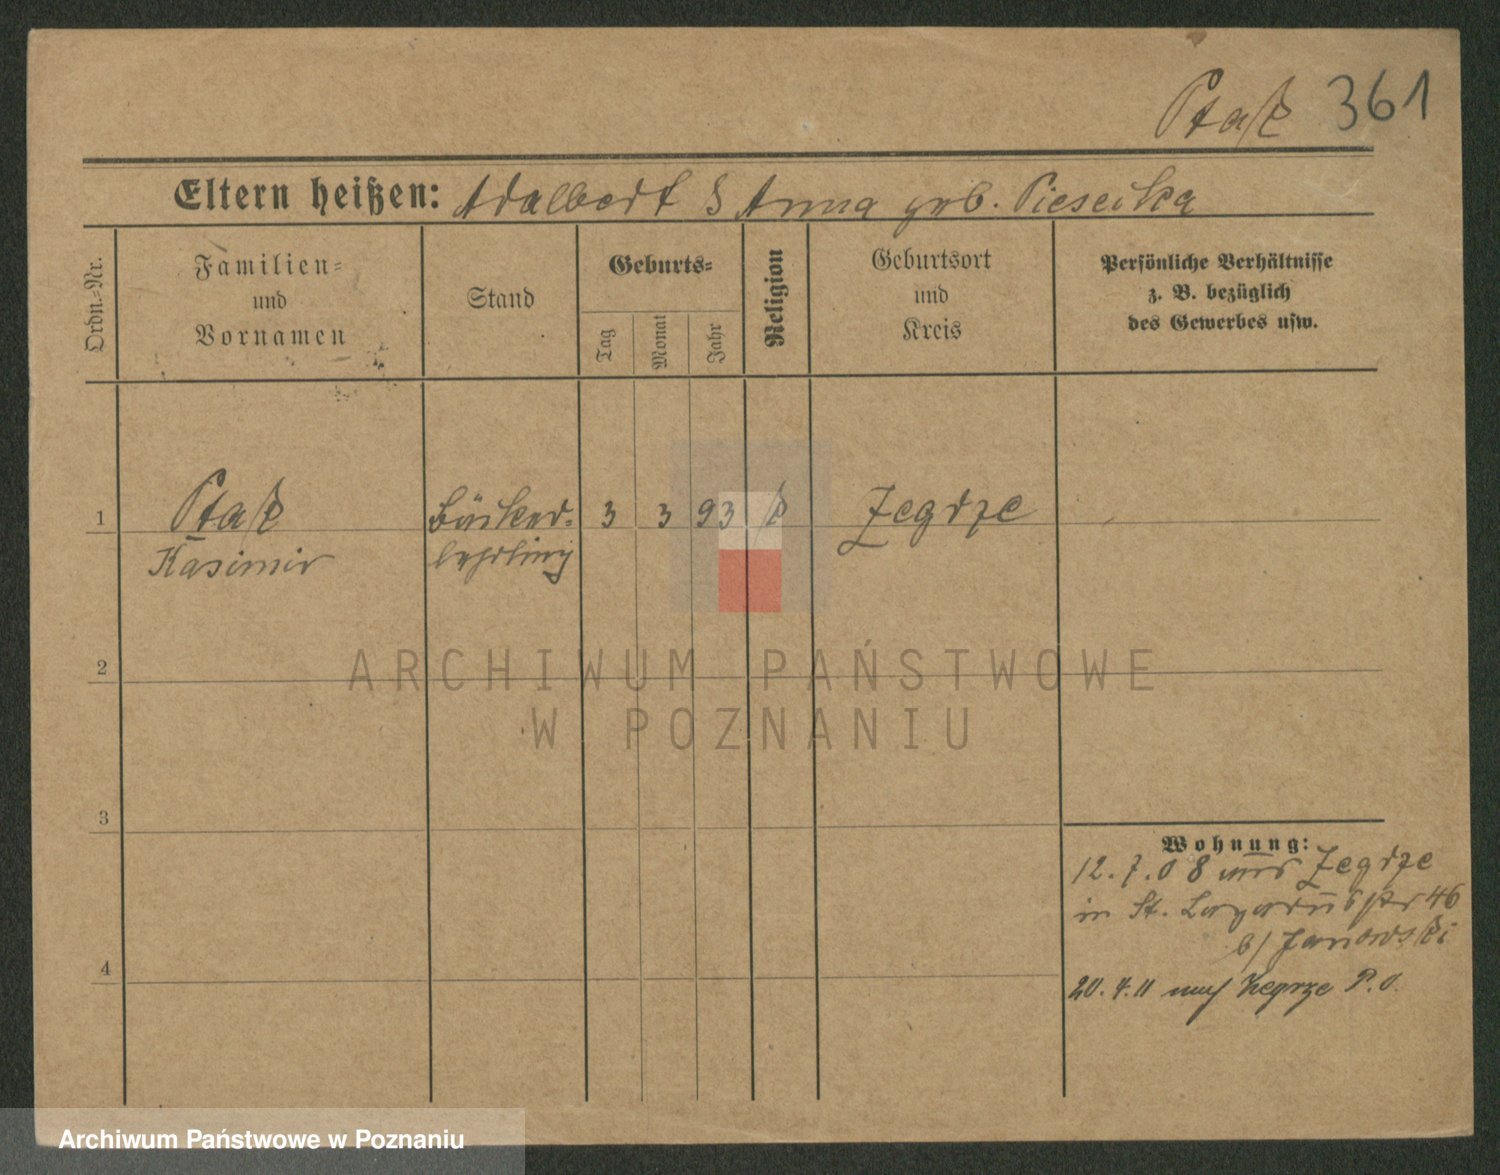 Ptak 361
Eltern heißen: Adalbert & Anna geb. Pieseika
Ordn.-Nr.
Familien-
und
Vornamen
Stand
Geburts-
Tag
Monat
Jahr
Religion
Geburtsort
und
Kreis
Persönliche Verhältnisse
z. B. bezüglich
des Gewerbes usw.
1 Ptak Bäcker- 3 3 93 k Zegrze
Kasimir lehrling
2
ARCHIWUM PAŃSTWOWE
W POZNANIU
3
Wohnung:
12.7.08 aus Zegrze
in St. Lazarusstr 46
b/ Janowski
4
20.4.11 nach Zegrze P.O.
Archiwum Państwowe w Poznaniu